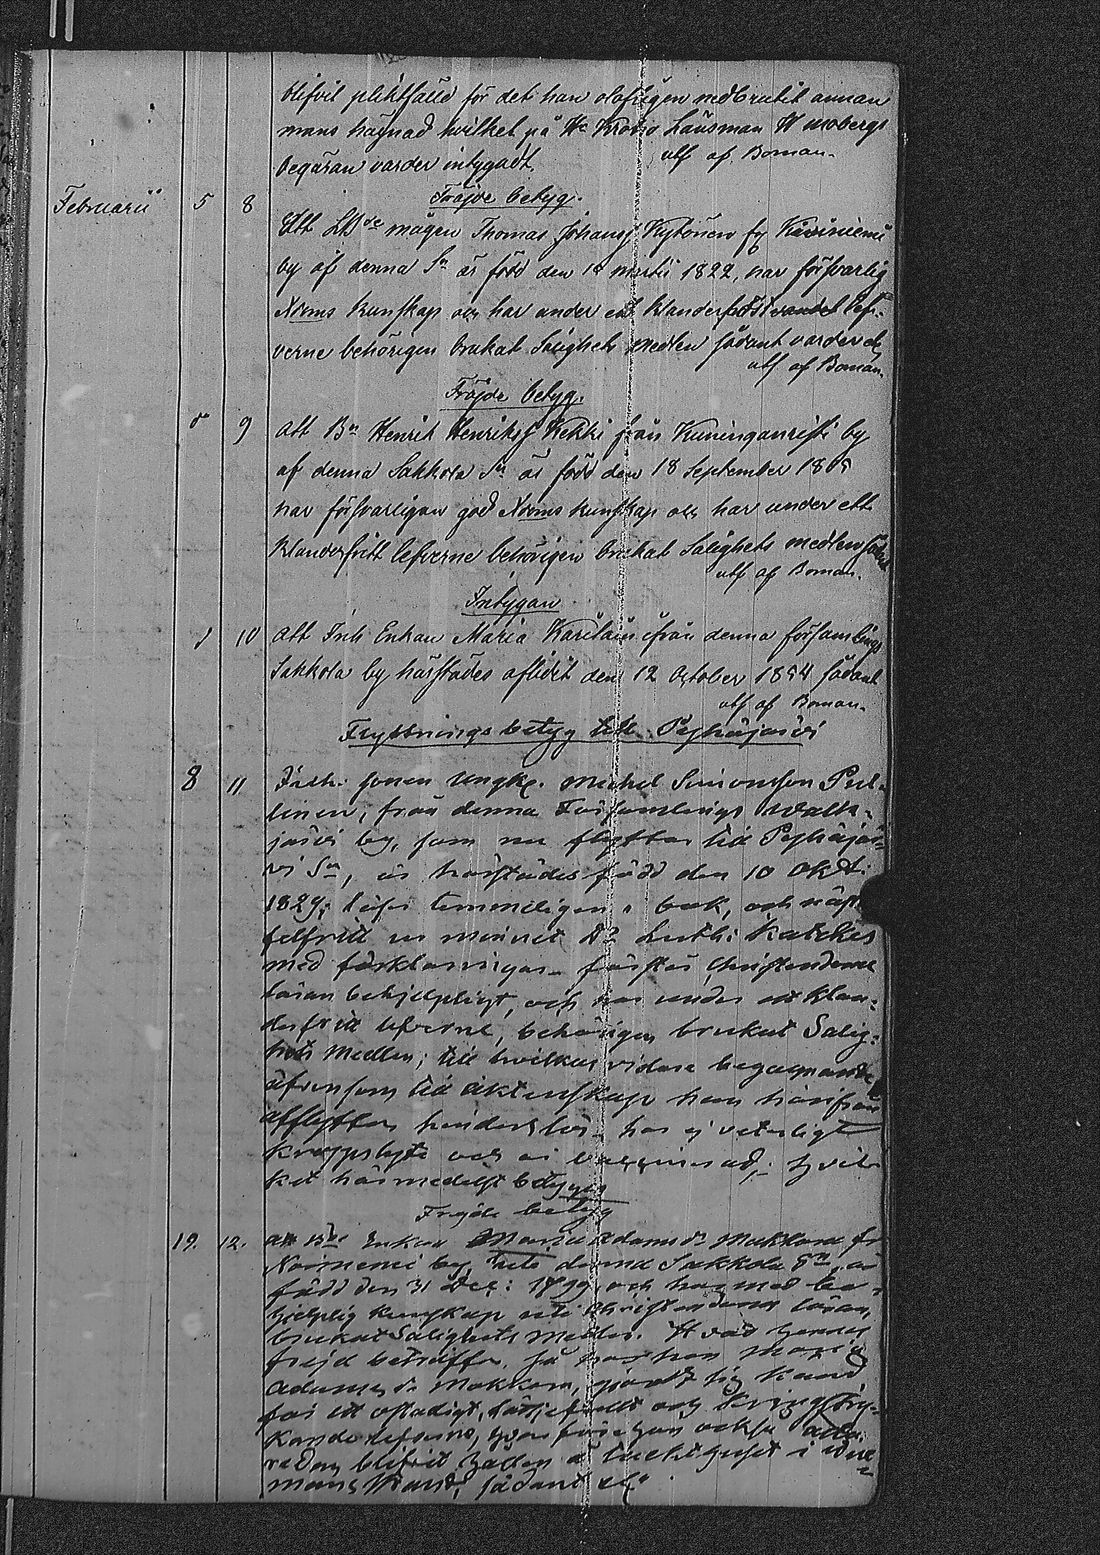 blifvit pliktfälld för det han olofligen nedbrutit annan
mans hägnad hvilket på Hr Krono Länsman H mobergs
begäran varder intygadt. utf af Boman.
Fräjde betyg.
Februarii 5 8 Att mågen Thomas Johansf Kytönen fr Kiviniemi
by af denna Sn är född den 18 martii 1822, har försvarlig
Xdoms kunskap och har under ett klanderfritt lef-
verne behörigen brukat Salighets medlen sådant varder
utf af Boman.
Fräjde betyg.
5 9 Att Bn Henrik Henriksf Kekki från Kuninganristi by
af denna Sakkola Sn är född den 18 September 1805
har försvarligen god Xdoms kunskap och har under ett
klanderfritt lefverne behörigen brukat Salighets medlen
utf af Boman.
Intygan
10 Att Inh: Enkan Maria från denna församlings
Sakkola by härstädes aflidit den 12 October 1854 sådant
utf af Boman.
Flyttnings betyg till Pyhäjärvi
8 11 Inh: sonen Ungk. Michel Simonsson
linen, från denna Församlings Walk-
järvi by, som nu flyttar till Pyhäjär-
vi Sn, är härstädes född den 10 Okt:
1829; läser temmeligen i bok, och näst
felfritt ur minnet Dr Luth: Katches
med förklaringar, förstår Christendoms
läran behjelpligt, och har under ett klan-
derfritt lefverne, behörigen brukat Salig-
hets Medlen; till hvilkas vidare begagnande
äfvensom till äktenskap han härifrån
afflyttar hinderslös, har ej veterligt
kroppslyte och är vaccinerad; hvil-
ket härmedelst betygas
Frejde betyg
19. 12. Att Bde Enkan Maria Adamsdr Mukkara fr
by uti denna Sakkola Sn, är
född den 31 Dec: 1799 och har med be-
hjelplig kunskap uti Christendoms läran
brukat Salighets medlen. Hvad hennes
frejd beträffar, så har hon Maria
Adamsdr gjort sig känd
för ett ostadigt, och kring stry-
kande lefverne, hvarföre hon också
redan blifvit Tukthuset i Vill-
manstrand, sådant